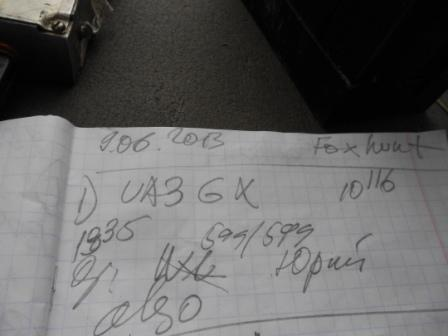 9.06.2013 Foxhunt
1) UA3GX 10116
1935 599/599
Юрий